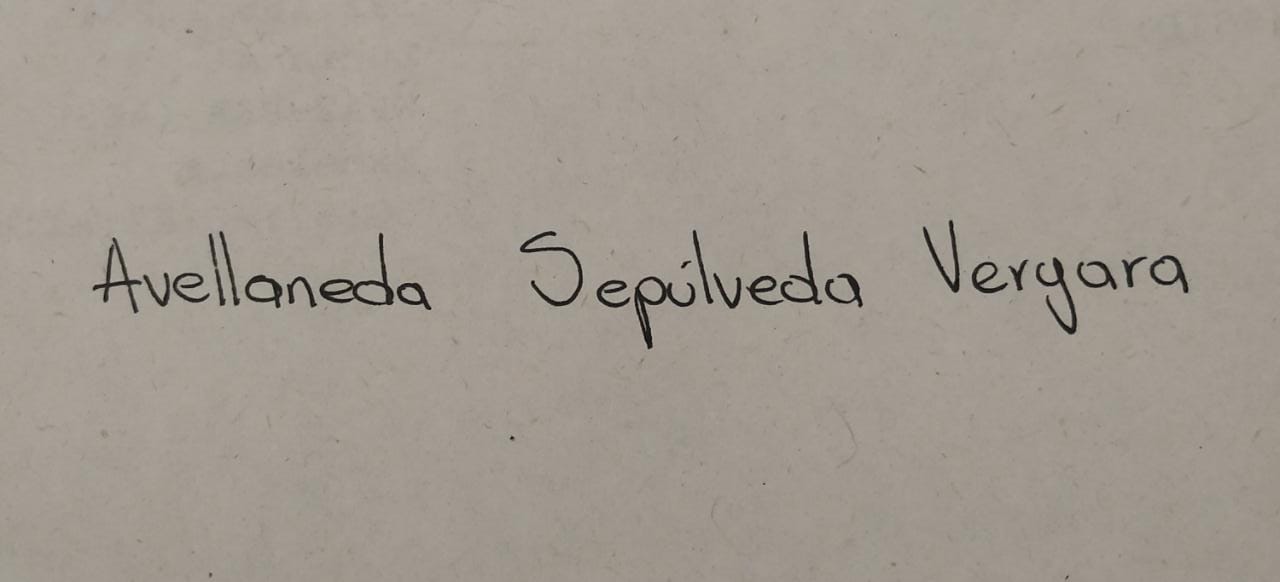 Avellaneda Sepúlveda Vergara